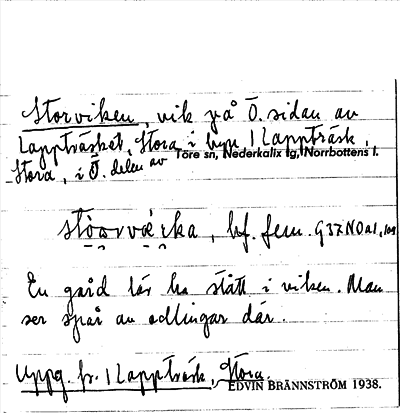 Storviken, vik på Ö. sidan av
Lappträsket, Stora i byn 1 Lappträsk,
Stora, i Ö. delen av Töre sn, Nederkalix lg, Norrbottens l.
stōarvǽika, bf. fem. G37NOa1,
En gård lär ha stått i viken. Man
ser spår av odlingar där.
Uppg. fr. 1 Lappträsk, Stora.
EDVIN BRÄNNSTRÖM 1938.